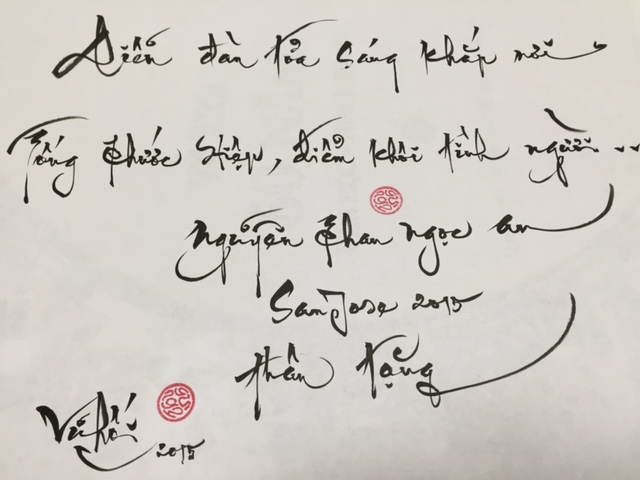 Diễn đàn tỏa sáng khắp nơi
Tống Phước Hiệp, điểm khôi tình người...
Nguyễn Phan Ngọc An
San Jose 2015
thân tặng
Vũ Hối
2015